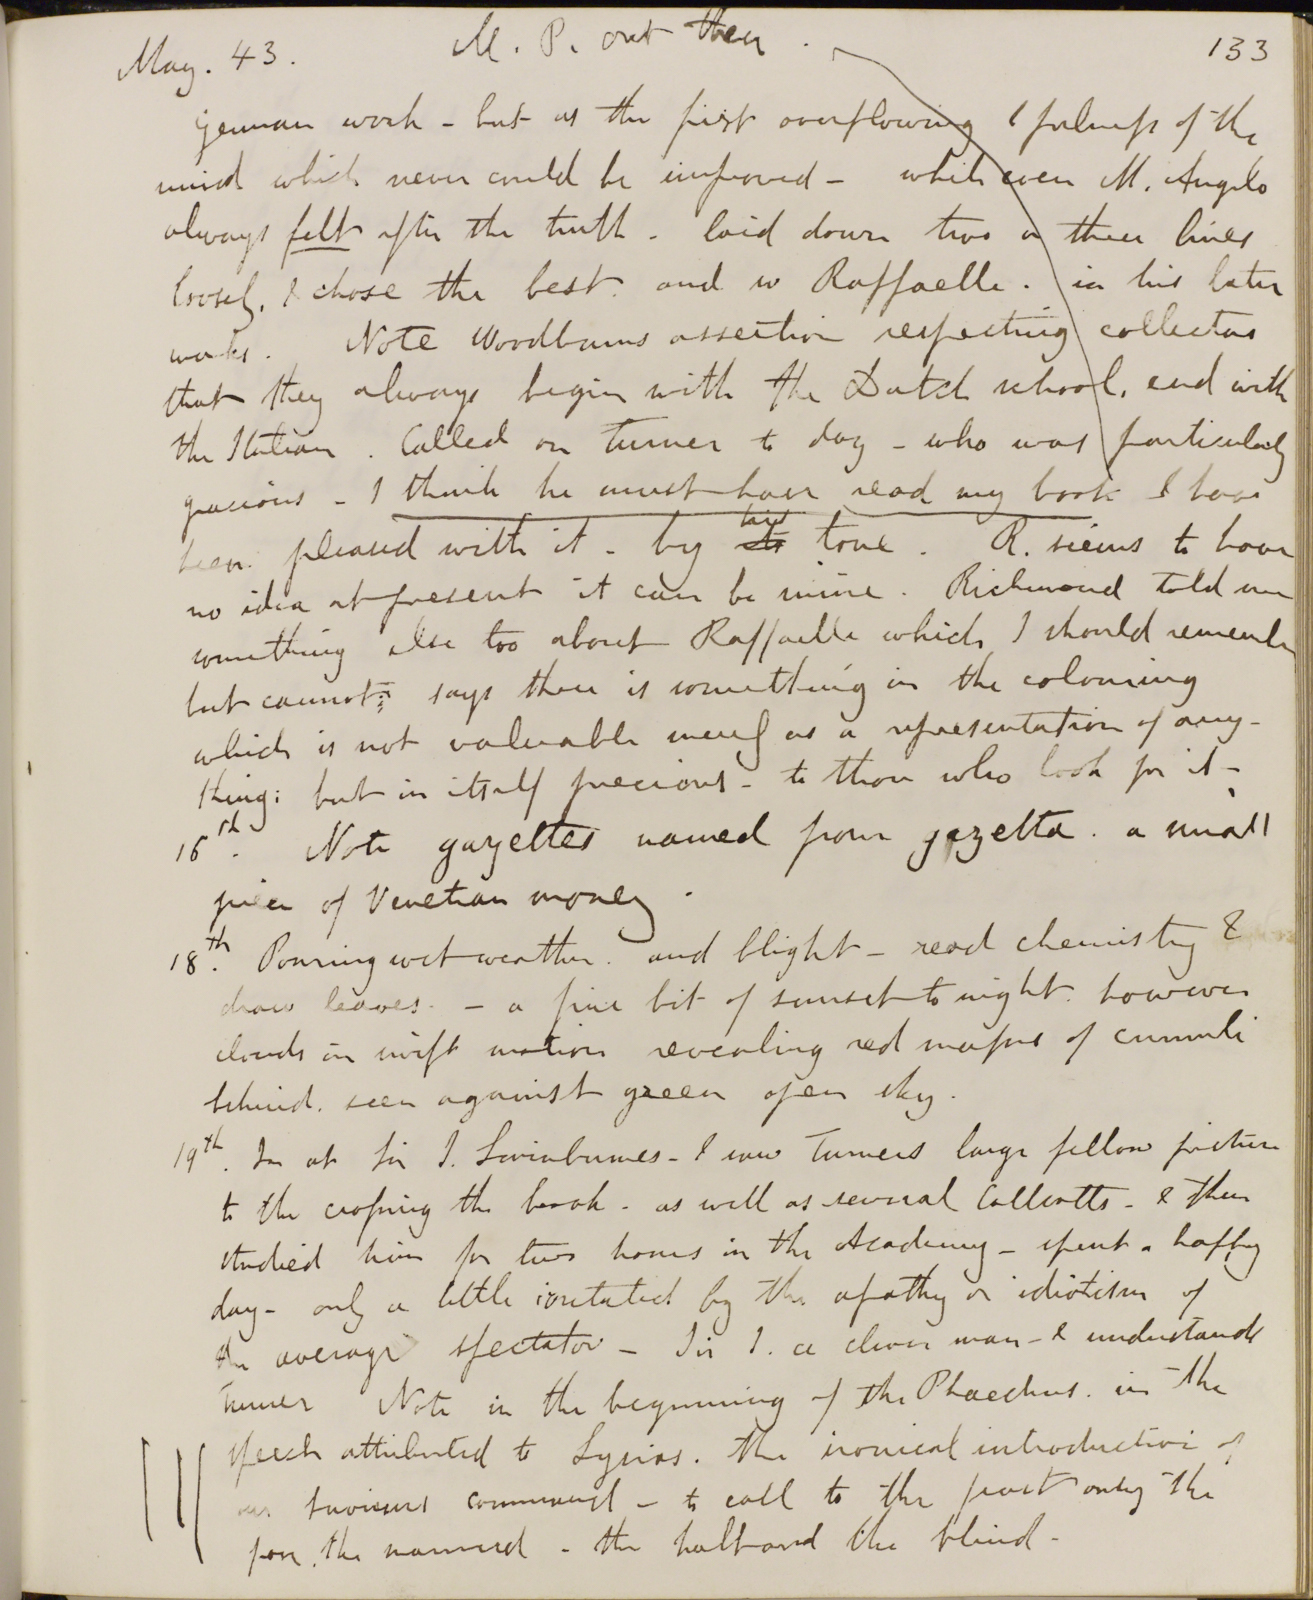 May. 43.
M. P. out then.
133
German work - but as the first overflowing & fulness of the
mind which never could be improved - while even M. Angelo
always felt after the truth - laid down two or three lines
loosely, & chose the best. and so Raffaelle. in his later
works. Note Woodburns assertion respecting collectors
that they always begin with the Dutch school, end with
the Italian. Called on Turner to day - who was particularly
gracious - I think he must have read my book & have
been pleased with it - by his tone. R. seems to have
no idea at present it can be mine. Richmond told me
something else too about Raffaelle which I should remember
but cannot; says there is something in the colouring
which is not valuable merely as a representation of any-
thing; but in itself precious - to those who look for it -
16th. Note gazettes named from gazetta. a small
piece of Venetian money.
18th. Pouring wet weather. and blight - read chemistry &
draw leaves. - a fine bit of sunset to night. however
clouds in swift motion revealing red masses of cumuli
behind. seen against green open sky.
19th. In at Sir J. Swinburnes - I saw Turners large fellow picture
to the crossing the brook - as well as several Callcotts - & then
studied him for two hours in the Academy - spent a happy
day - only a little irritated by the apathy or idiotism of
the average spectator - Sir J. a clever man - & understands
Turner Note in the beginning of the Phaedrus. in the
speech attributed to Lysias. the ironical introduction of
our Saviours command - to call to the feast only the
poor, the maimed - the halt and the blind -